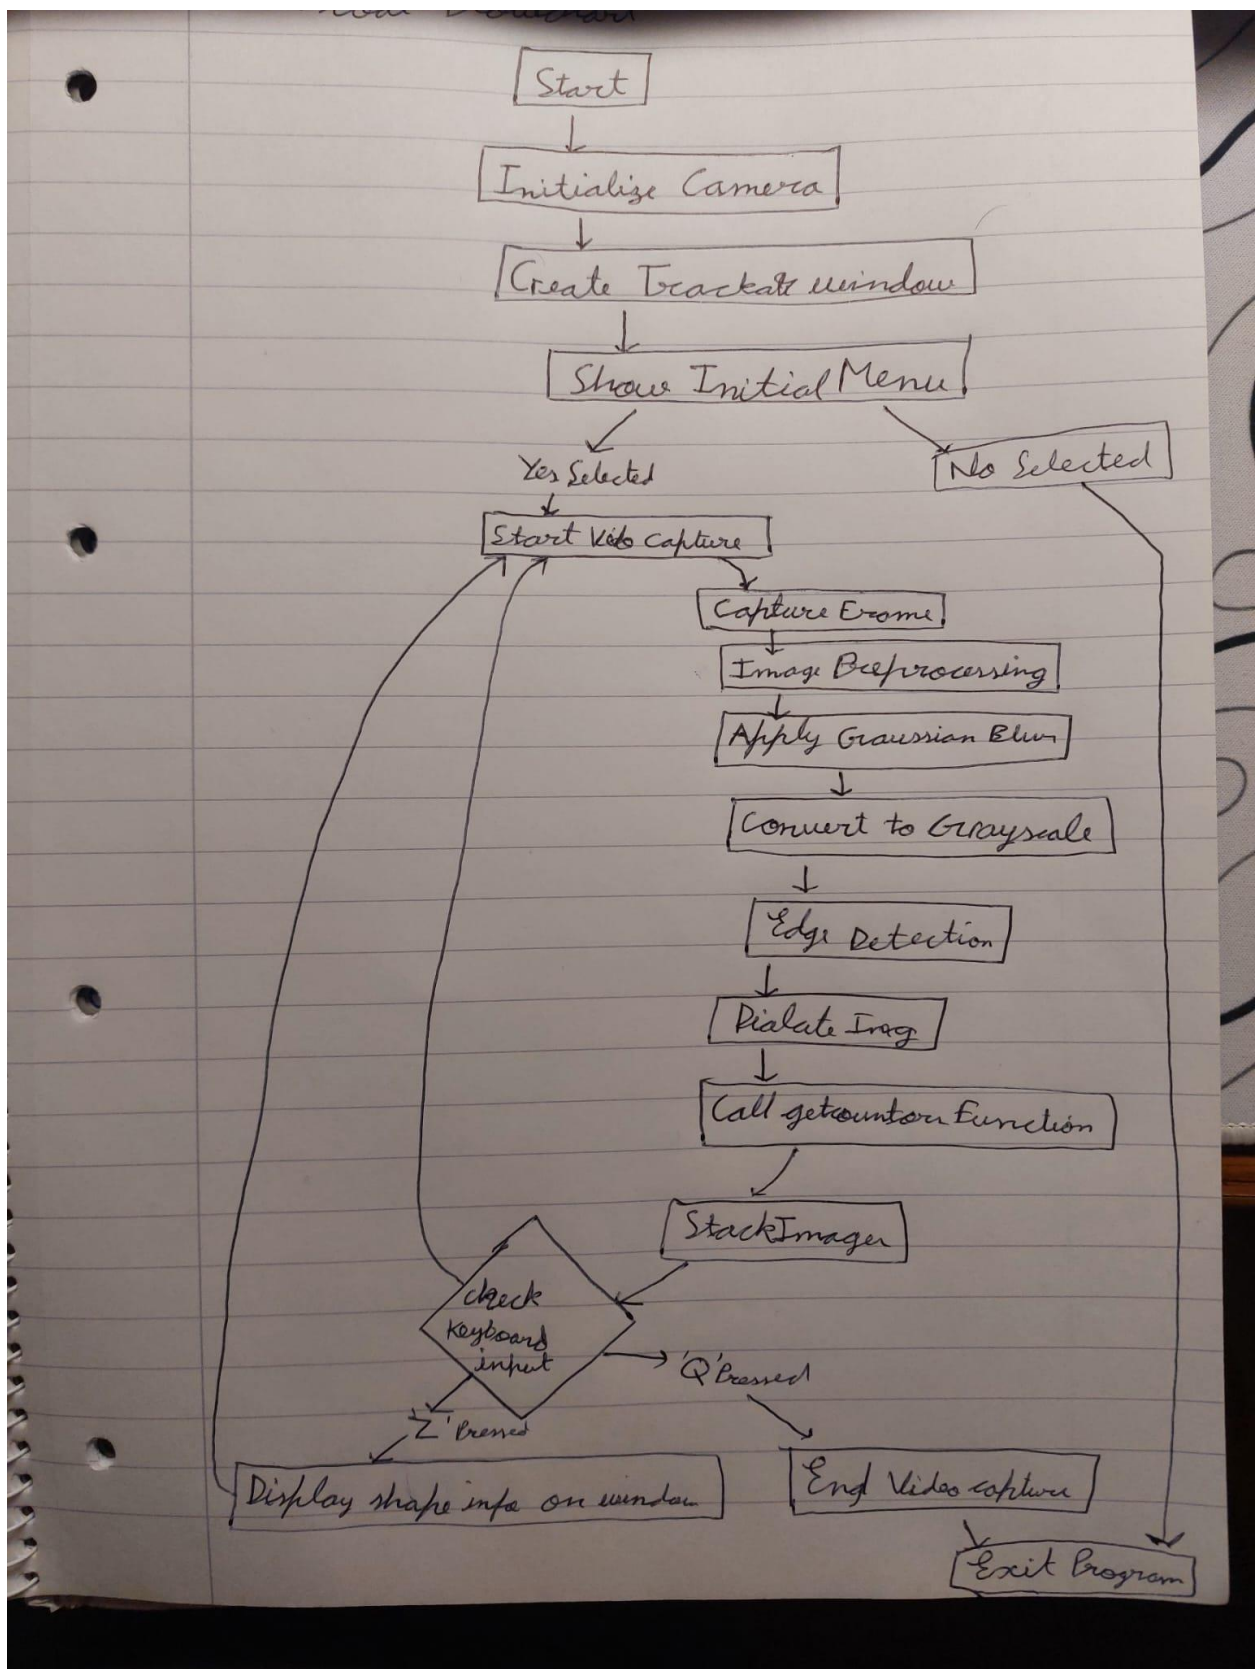 Start
Initialize Camera
Create Trackate window
Show Initial Menu
Yes Selected
No Selected
Start Video capture
Capture Frame
Image Preprocessing
Apply Graussian Blur
Convert to Grayscale
Edge Detection
Dialate Imag
Call getcountour Function
StackImages
check
keyboard
input
'Q' Pressed
Z' Pressed
Display shape info on window
End Video capture
Exit Program